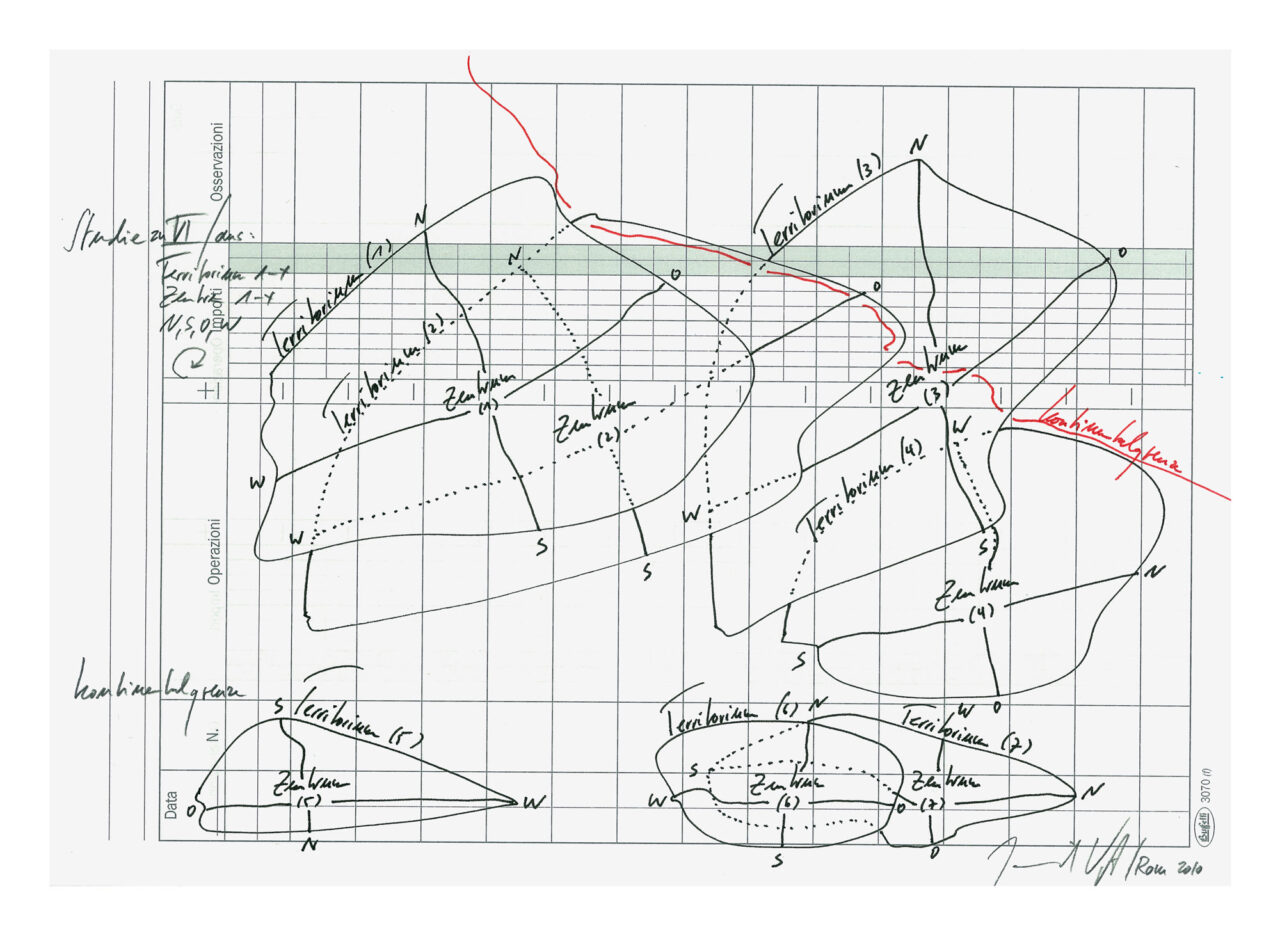 Osservazioni
N
N
Territorium (3)
Studie zu VI / das:
Territorium 1-7
Zentrum 1-7
N, S, O, W
Importi
Territorium (1)
N
O
O
O
Territorium (2)
Zentrum
(1)
Zentrum
(2)
Zentrum
(3)
Kontinentalgrenze
W
W
Territorium (4)
W
W
S
S
S
Operazioni
Zentrum
(4)
N
S
O
Kontinentalgrenze
N.
S
Territorium (5)
Zentrum
(5)
O
W
N
Territorium (6)
N
S
Zentrum
(6)
W
O
S
Territorium (7)
W
Zentrum
(7)
N
O
Data
Buffetti
3070 (1)
/ Rom 2010